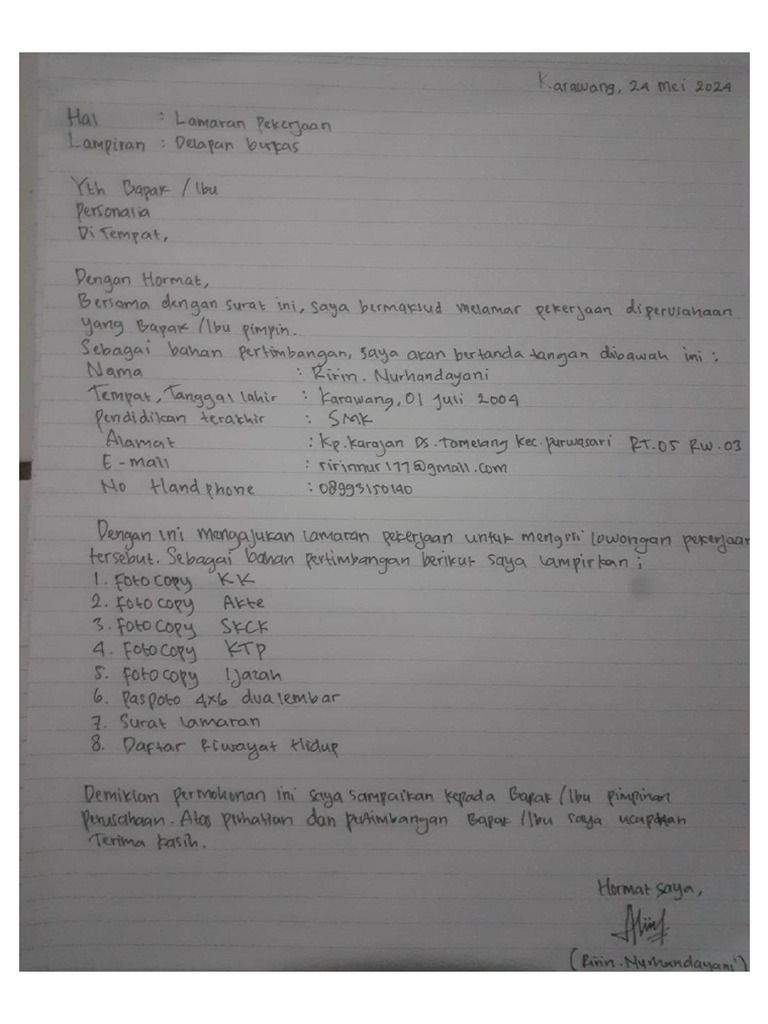 Karawang, 24 Mei 2024
Hal : Lamaran Pekerjaan
Lampiran : Delapan burkas
Yth Bapak / Ibu
Personalia
Di Tempat,
Dengan Hormat,
Bersama dengan surat ini, saya bermaksud melamar pekerjaan diperusahaan
yang Bapak / Ibu pimpin.
Sebagai bahan pertimbangan, saya akan bertanda tangan dibawah ini :
Nama : Ririn. Nurhandayani
Tempat, Tanggal lahir : Karawang, 01 Juli 2004
Pendidikan terakhir : SMK
Alamat : Kp. Karajan Ds. Tamelang Kec. purwasari RT.05 RW.03
E-mail : ririnnur177@gmail.com
No Handphone : 08993150140
Dengan ini mengajukan lamaran pekerjaan untuk mengisi lowongan pekerjaan
tersebut. Sebagai bahan pertimbangan berikut saya lampirkan ;
1. Fotocopy KK
2. Fotocopy Akte
3. Fotocopy SKCK
4. Fotocopy KTP
5. Fotocopy Ijazah
6. Paspoto 4x6 dua lembar
7. Surat lamaran
8. Daftar Riwayat Hidup
Demikian permohonan ini saya sampaikan kepada Bapak / Ibu pimpinan
perusahaan. Atas perhatian dan putimbangan Bapak / Ibu saya ucapkan
Terima kasih.
Hormat saya,
(Ririn. Nurhandayani)